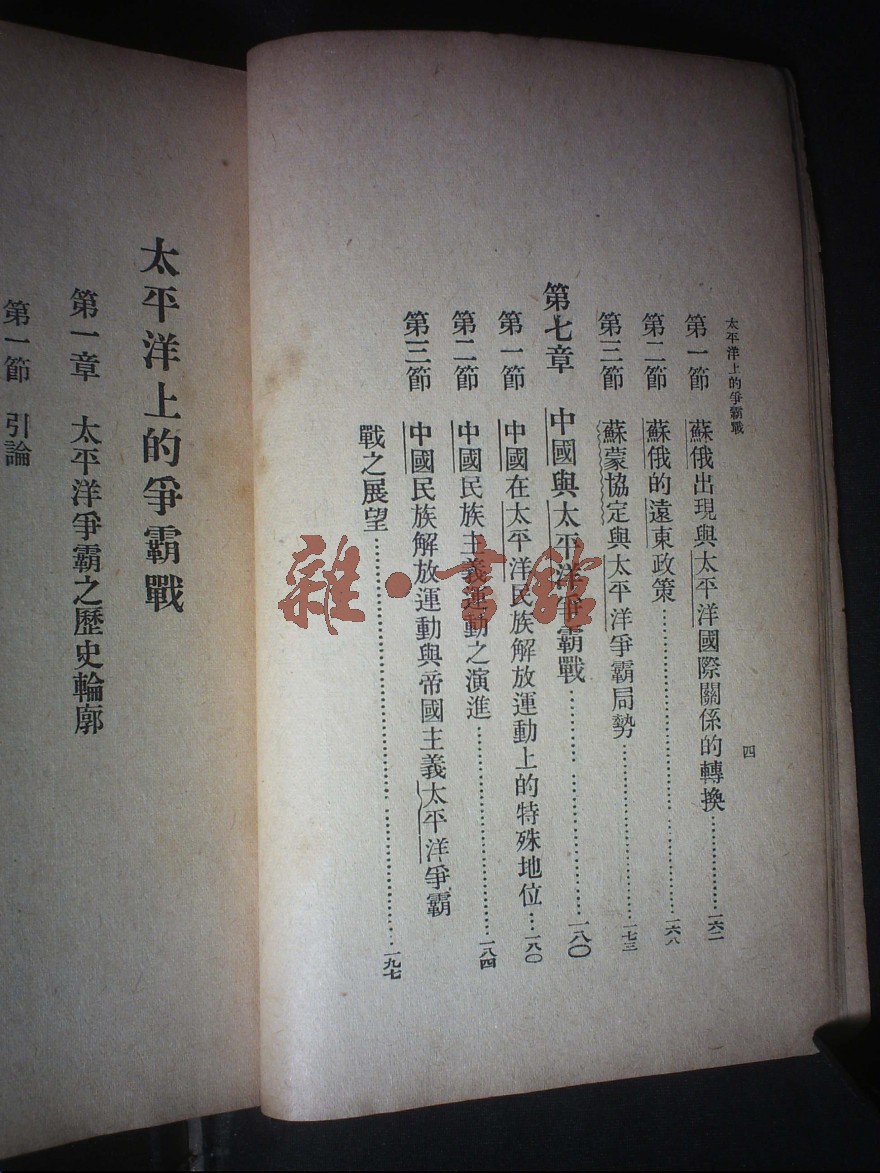 太平洋上的爭霸戰
四
第一節 蘇俄出現與太平洋國際關係的轉換…………一六二
第二節 蘇俄的遠東政策…………一六八
第三節 蘇蒙協定與太平洋爭霸局勢…………一七三
第七章 中國與太平洋爭霸戰…………一八〇
第一節 中國在太平洋民族解放運動上的特殊地位…一八〇
第二節 中國民族主義運動之演進…………一八四
第三節 中國民族解放運動與帝國主義太平洋爭霸
戰之展望…………一九七
太平洋上的爭霸戰
第一章 太平洋爭霸之歷史輪廓
第一節 引論
雜·書館